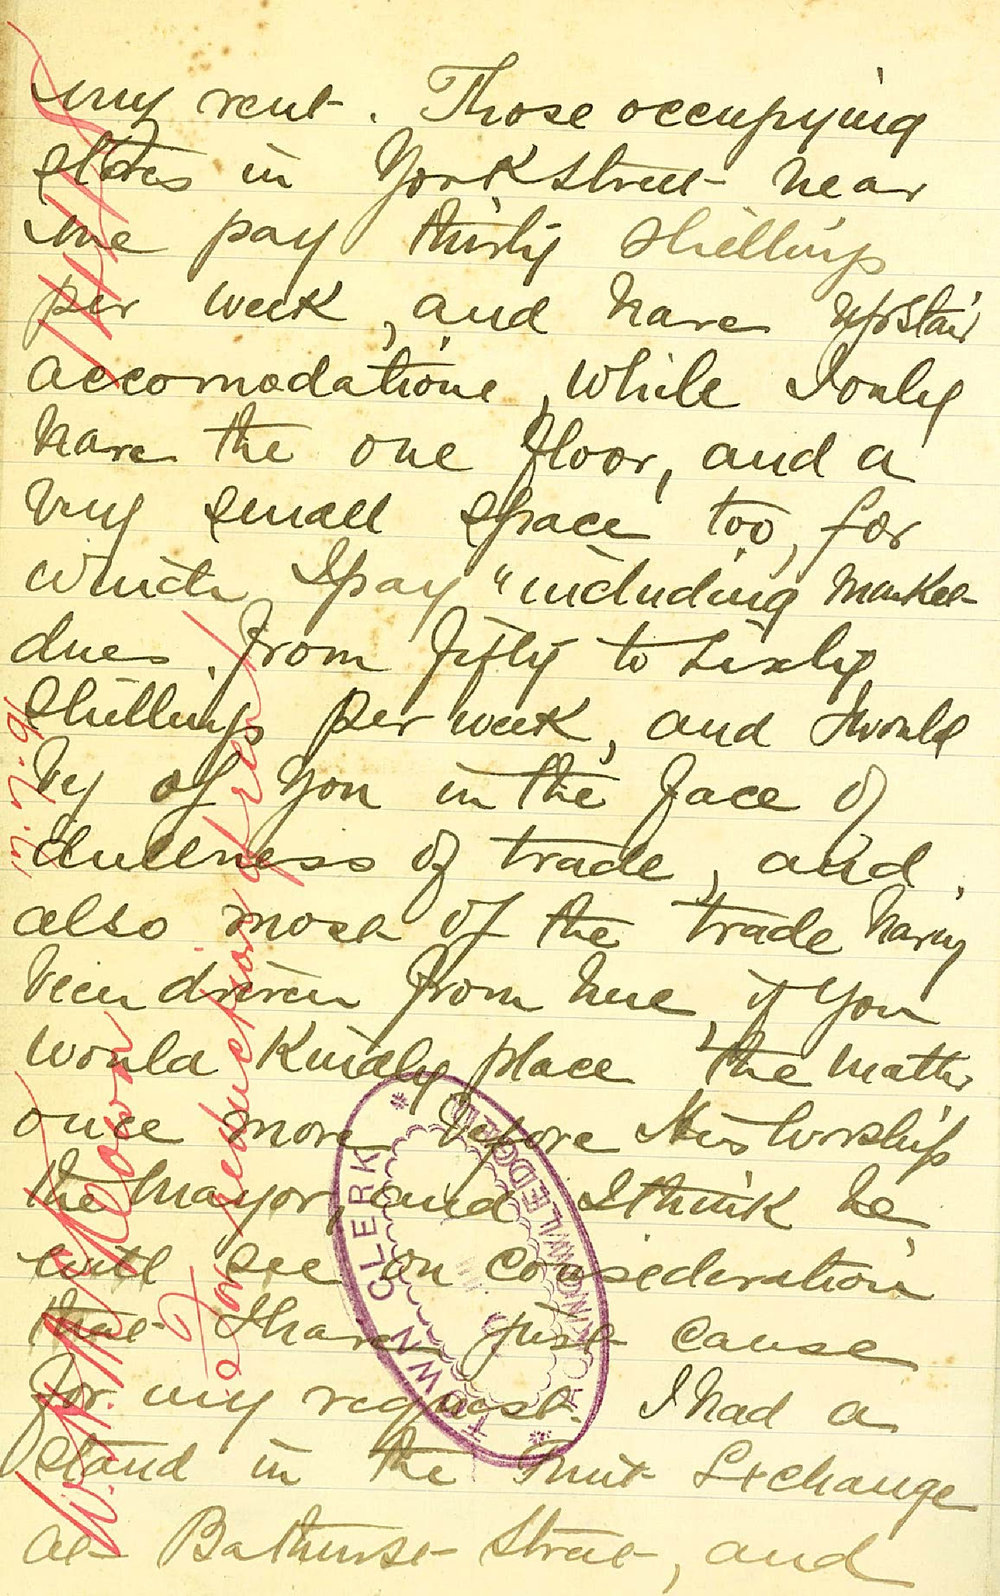 my rent. Those occupying
stores in York Street near
me pay thirty shillings
per week, and have upstair
accomodatione, while I only
have the one floor, and a
very small space too, for
which I pay "including Market
dues. from fifty to sixty
shillings per week, and I would
beg of you in the face of
dullness of trade, and,
also most of the trade having
been driven from here, if you
would kindly place the matter
once more before His Worship
the Mayor, and I think he
will see on consideration
that I have just cause
for my request. I had a
stand in the Fruit Exchange
at Bathurst Street, and
For reduction of rent
TOWN CLERK
ACKNOWLEDGED